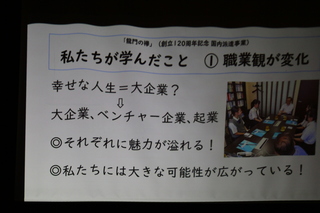 「龍門の棒」(創立120周年記念 国内派遣事業)
私たちが学んだこと ①職業観が変化
幸せな人生=大企業?
⇩
大企業、ベンチャー企業、起業
◎それぞれに魅力が溢れる!
◎私たちには大きな可能性が広がっている!